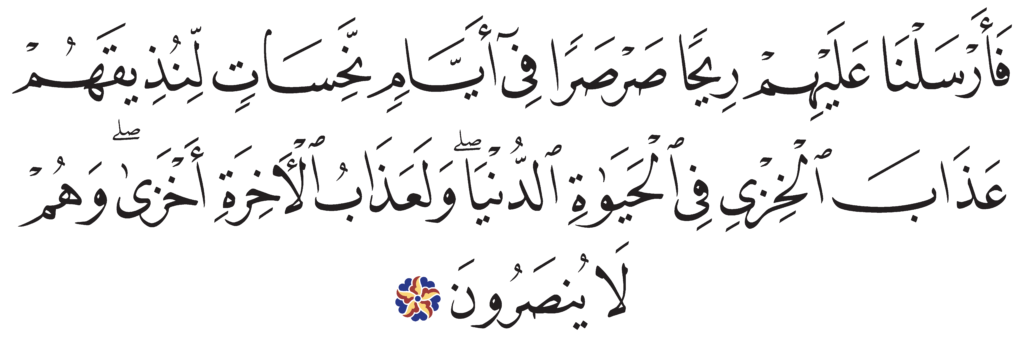 فَأَرْسَلْنَا عَلَيْهِمْ رِيحًا صَرْصَرًا فِىٓ أَيَّامٍ نَّحِسَاتٍ لِّنُذِيقَهُمْ
عَذَابَ ٱلْخِزْىِ فِى ٱلْحَيَوٰةِ ٱلدُّنْيَا ۖ وَلَعَذَابُ ٱلْأَخِرَةِ أَخْزَىٰ ۖ وَهُمْ
لَا يُنصَرُونَ